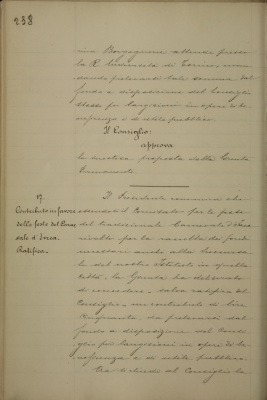 238
rina Borgogno attende presso
la R. Università di Torino, man
dando prelevarsi tale somma dal
fondo a disposizione del Consiglio
stesso per largizioni in opere di be
neficenza e di utile pubblico.
Il Consiglio
approva
la suestesa proposta della Giunta
Permanente
17.
Contributo in favore
delle feste del Carne
vale d'Ivrea.
Ratifica.
Il Presidente comunica che
essendosi il Comitato per le feste
del tradizionale Carnevale d'Ivrea
rivolto per la raccolta dei fondi
necessari anche alla
del nostro Istituto in quella
città, la Giunta ha deliberato
di concedere, salvo ratifica del
Consiglio, un contributo di lire
Cinquanta, da prelevarsi dal
fondo a disposizione del Consi
glio per largizioni in opere di be
neficenza e di utile pubblico.
Ora richiede al Consiglio la